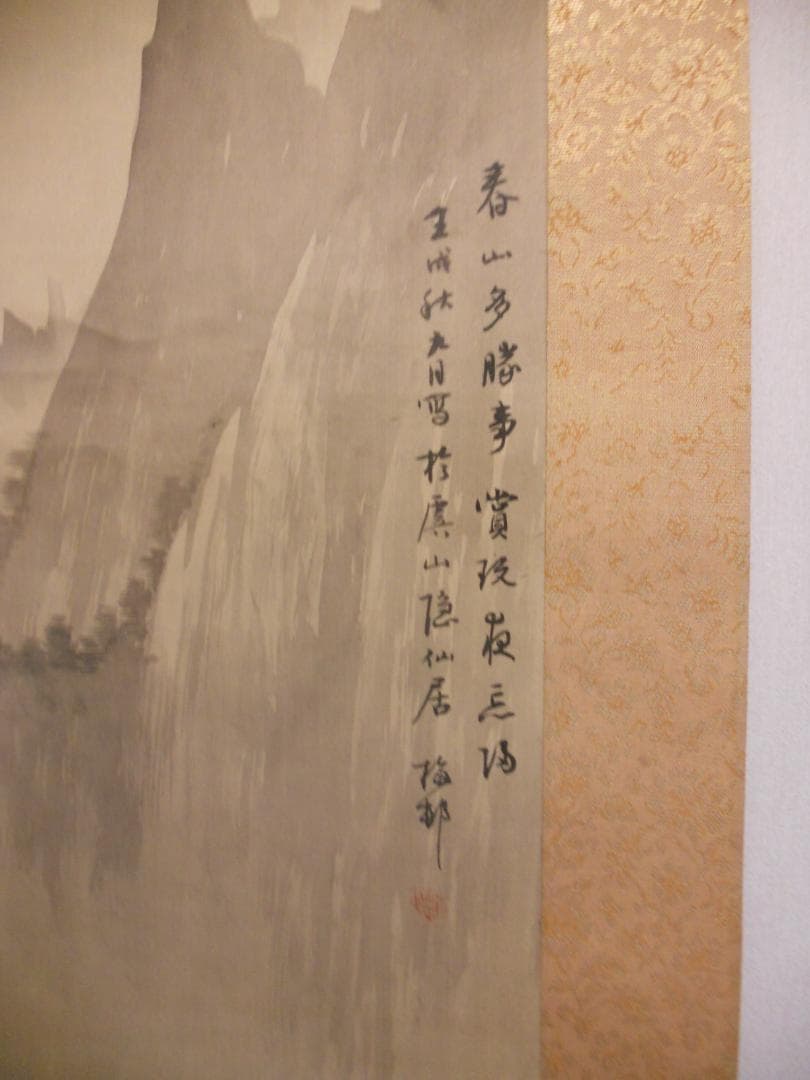 春山多勝事賞玩夜忘归
壬戌秋九月写於虞山隐仙居 梅邨